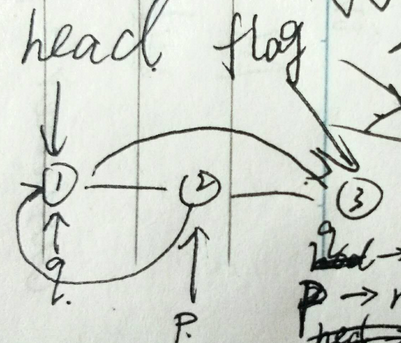 head flag
① ② ③
q
q
P → 
P.